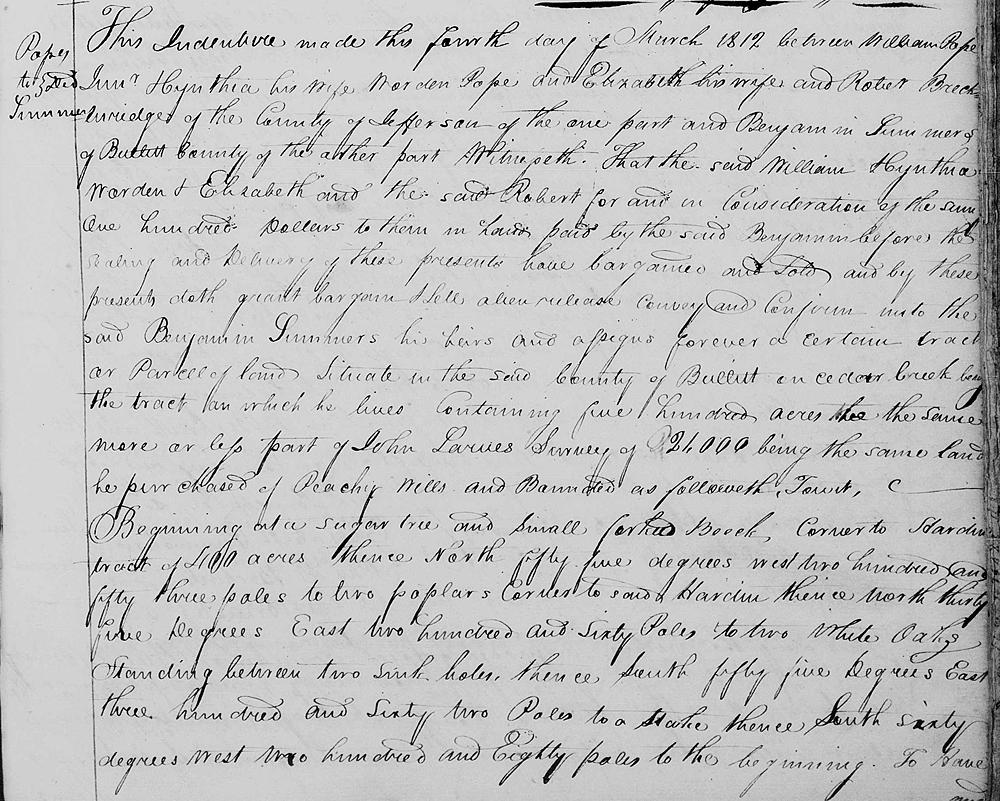 Popes
to Deed
Summers
This Indenture made this fourth day of March 1812 between William Pope
Junr Hynthia his wife Worden Pope and Elizabeth his wife and Robert Breck-
inridge of the County of Jefferson of the one part and Benjamin Summers
of Bullitt County of the other part Witnesseth. That the said William Hynthia
Worden & Elizabeth and the said Robert for and in Consideration of the sum
One hundred Dollars to them in hand paid by the said Benjamin before the
sealing and Delivery of these presents have bargained and Sold and by these
presents doth grant bargain & Sell alien release Convey and Confirm unto the
said Benjamin Summers his heirs and assigns forever a certain tract
or Parcel of land Situate in the said County of Bullitt on cedar Creek being
the tract on which he lives Containing five hundred acres the the same
more or less part of John Survey of 21,000 being the same land
he purchased of Peachy Wills and Bounded as followeth, Towit,
Beginning at a sugar tree and small forked Beech, Corner to Hardin
tract of 400 acres thence North fifty five degrees west two hundred and
fifty three poles to two poplars Corner to said Hardin thence North thirty
five Degrees East two hundred and Sixty Poles to two White Oaks
Standing between two sink holes, thence South fifty five Degrees East
three hundred and Sixty two Poles to a Stake thence South sixty
degrees West two hundred and Eighty poles to the beginning. To Have
and